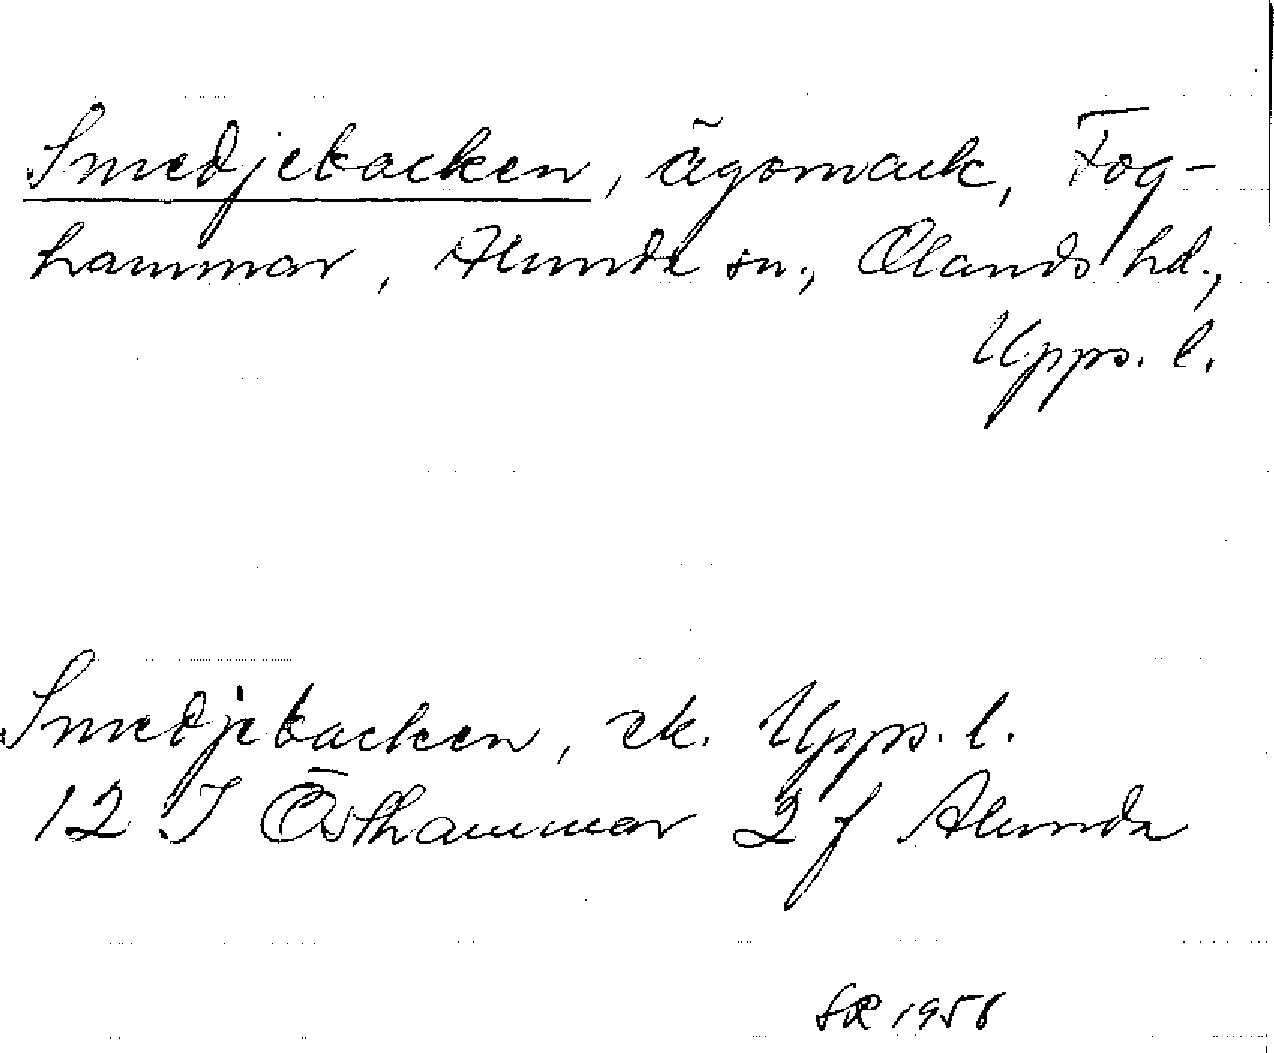 Smedjebacken, ägomark, Fog-
hammar, Alunda sn., Olands hd.,
Upps. l.
Smedjebacken, ek. Upps. l.
12 I Östhammar 2 f Alunda
SR 1958